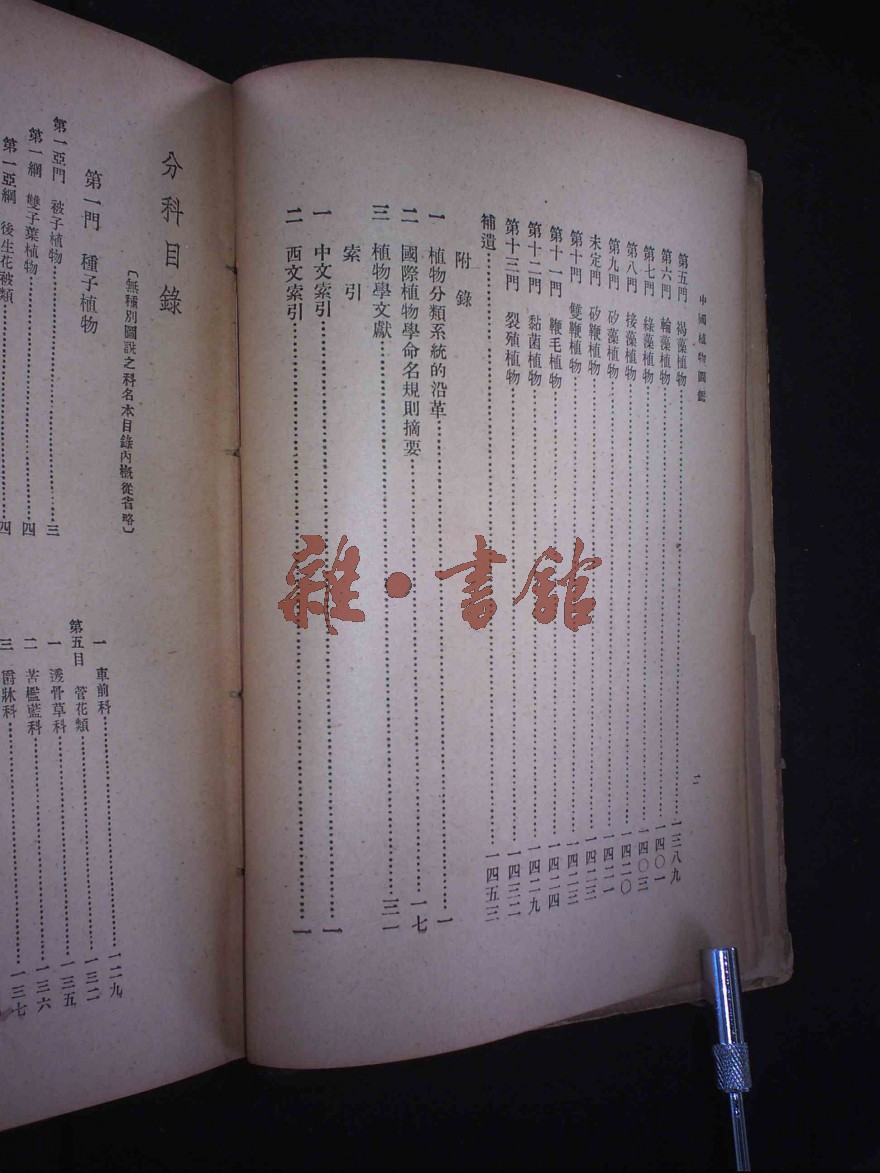 中國植物圖鑑
二
第五門 褐藻植物 一三八九
第六門 輪藻植物 一四〇一
第七門 綠藻植物 一四〇三
第八門 接藻植物 一四二〇
第九門 矽藻植物 一四二一
未定門 矽鞭植物 一四二三
第十門 雙鞭植物 一四二三
第十一門 鞭毛植物 一四二四
第十二門 黏菌植物 一四二九
第十三門 裂殖植物 一四三二
補遺 一四五三
附錄
一 植物分類系統的沿革 一
二 國際植物學命名規則摘要 一七
三 植物學文獻 三一
索引
一 中文索引 一
二 西文索引 一
分科目錄
〔無種別圖說之科名本目錄內概從省略〕
第一門 種子植物
第一亞門 被子植物 三
第一綱 雙子葉植物 四
第一亞綱 後生花被類 四
一 車前科 一二九
第五目 管花類 一三二
一 透骨草科 一三五
二 苦檻藍科 一三六
三 爵牀科 一三七
雜·書館